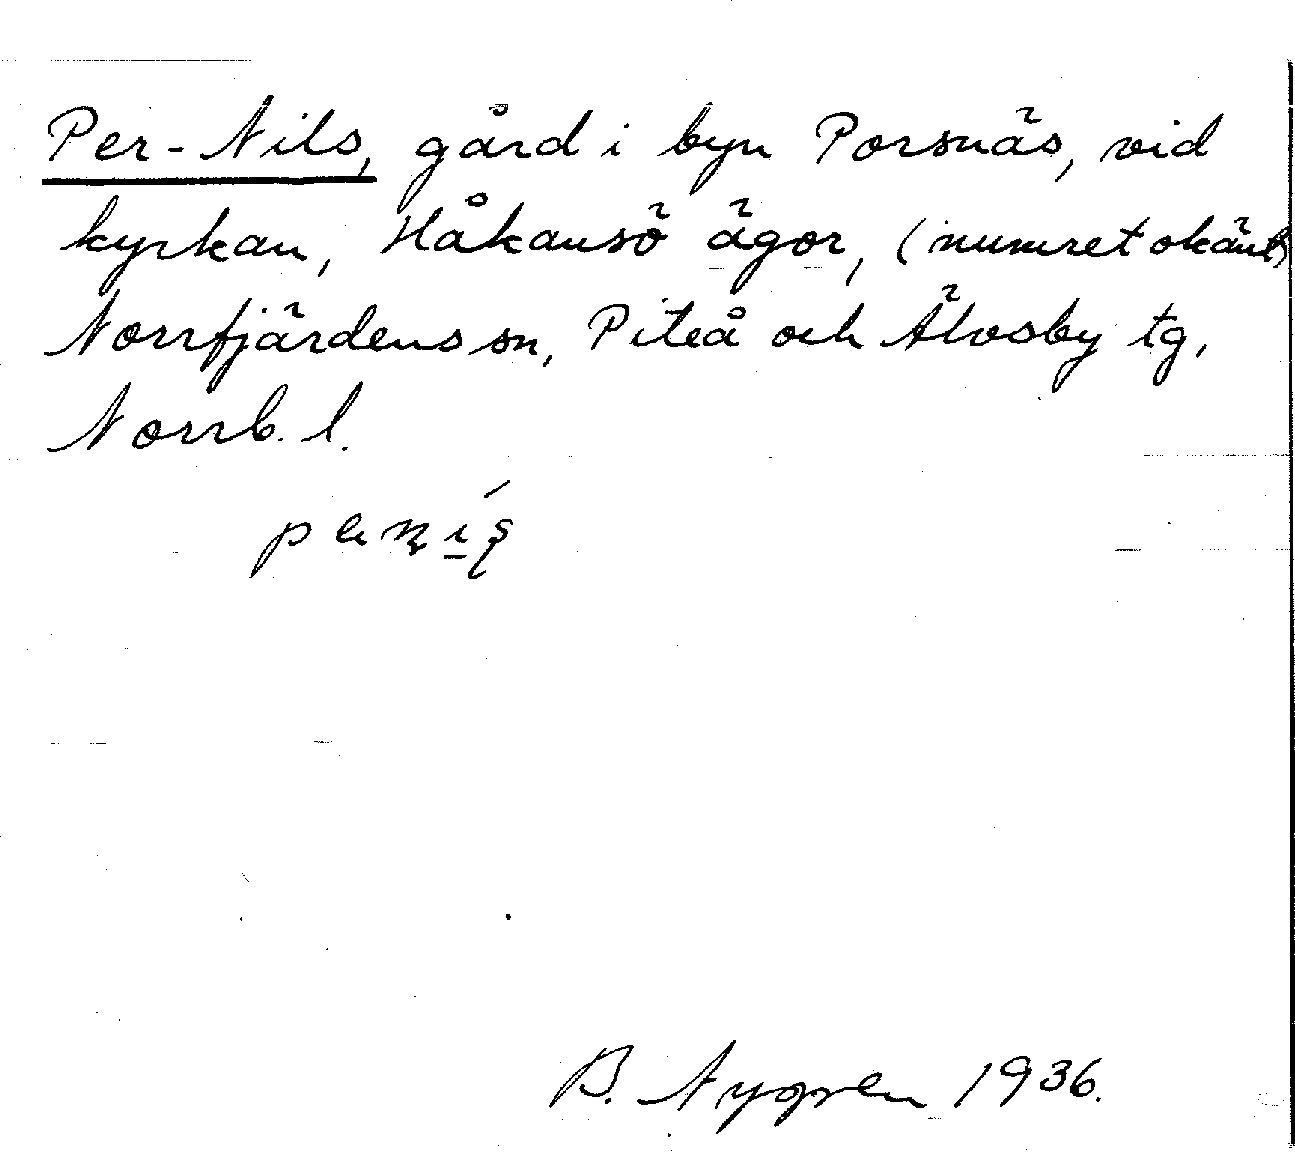 Per-Nils, gård i byn Porsnäs, vid
kyrkan, Håkansö ägor, (numret okänt)
Norrfjärdens sn, Piteå och Älvsby tg,
Norrb. l.
B. Nygren 1936.